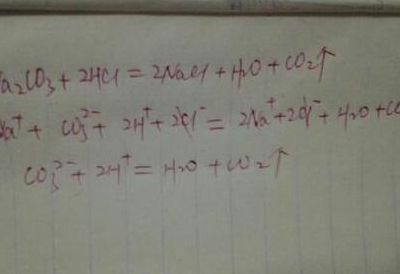 a₂CO₃ + 2HCl = 2NaCl + H₂O + CO₂↑
Na⁺ + CO₃²⁻ + 2H⁺ + 2Cl⁻ = 2Na⁺ + 2Cl⁻ + H₂O + CO
CO₃²⁻ + 2H⁺ = H₂O + CO₂↑